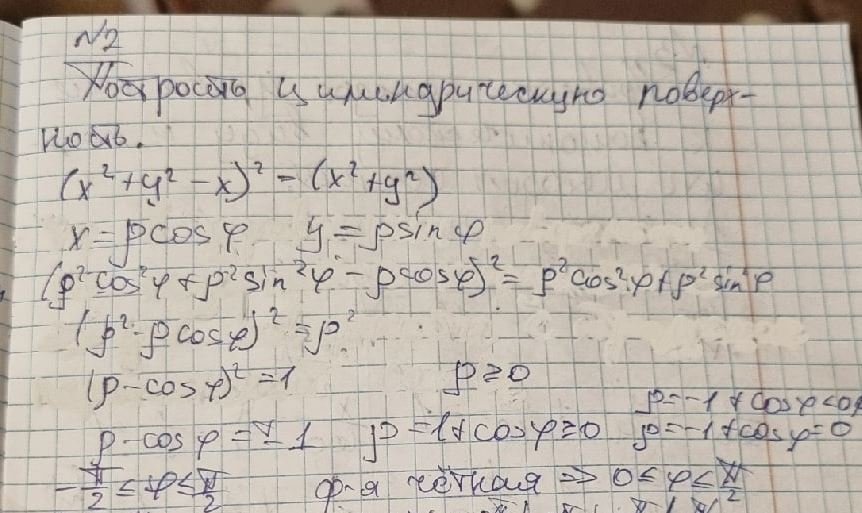 N2
Построить цилиндрическую поверх-
ность.
(x² + y² - x)² = (x² + y²)
x = ρcosφ y = ρsinφ
(ρ²cos²φ + ρ²sin²φ - ρcosφ)² = ρ²cos²φ + ρ²sin²φ
(ρ² - ρcosφ)² = ρ²
(ρ - cosφ)² = 1 ρ ≥ 0
ρ = -1 + cosφ < 0
ρ - cosφ = ± 1 ρ = 1 + cosφ ≥ 0 ρ = -1 + cosφ = 0
-π/2 ≤ φ ≤ π/2 ф-я чётная ⇒ 0 ≤ φ ≤ π/2